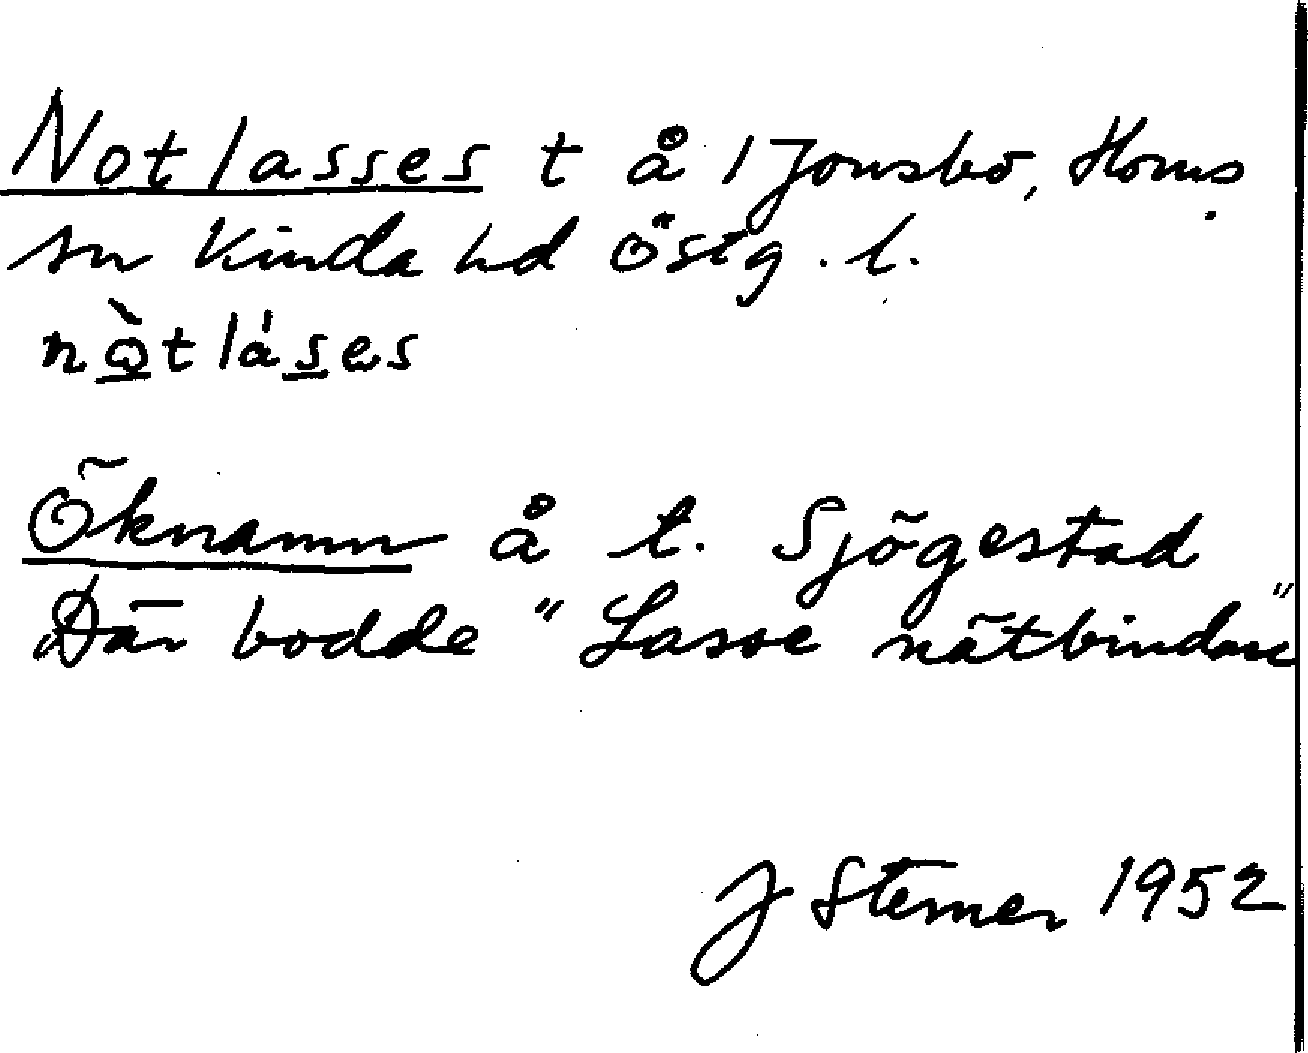 Notlasses t å 1 Jonsbo, Horns
sn Kinda hd Östg. l.
nò̱tlás̱es
Öknamn å t. Sjögestad
Där bodde "Lasse nätbindare"
J Sterner 1952